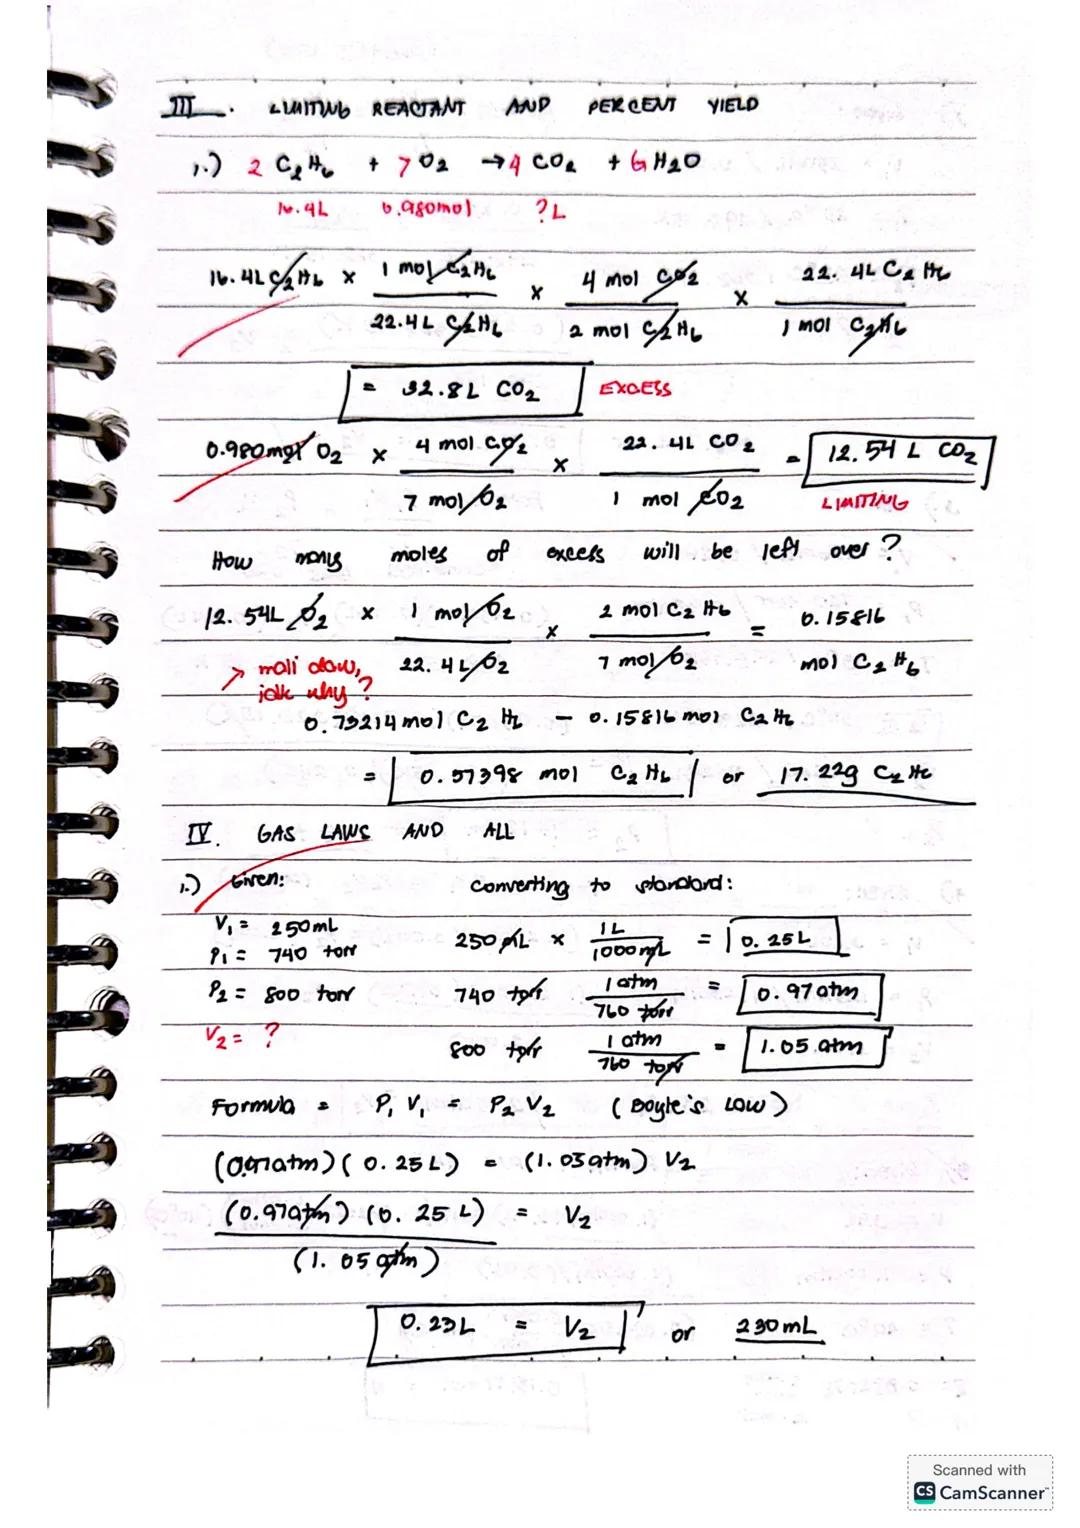 III. LIMITING REACTANT AND PERCENT YIELD
1.) 2 C2H6 + 7 O2 → 4 CO2 + 6 H2O
16.4L 0.980mol ?L
16.4L C2H6 x 1 mol C2H6 / 22.4L C2H6 x 4 mol CO2 / 2 mol C2H6 x 22.4L C2H6 / 1 mol C2H6
= 32.8L CO2 EXCESS
0.980mol O2 x 4 mol CO2 / 7 mol O2 x 22.4L CO2 / 1 mol CO2 = 12.54 L CO2
LIMITING
How many moles of excess will be left over?
12.54L O2 x 1 mol O2 / 22.4L O2 x 2 mol C2H6 / 7 mol O2 = 0.15816 mol C2H6
> mali daw, idk why?
0.73214 mol C2H6 - 0.15816 mol C2H6
= 0.57398 mol C2H6 or 17.22g C2H6
IV. GAS LAWS AND ALL
1.) Given: Converting to standard:
V1 = 250mL
P1 = 740 torr
250 mL x 1L / 1000mL = 0.25L
P2 = 800 torr 740 torr 1 atm / 760 torr = 0.97atm
V2 = ? 800 torr 1 atm / 760 torr = 1.05 atm
Formula = P1 V1 = P2 V2 (Boyle's Law)
(0.97atm)(0.25L) = (1.05atm) V2
(0.97atm)(0.25L) / (1.05atm) = V2
0.23L = V2 or 230mL
Scanned with
CS CamScanner